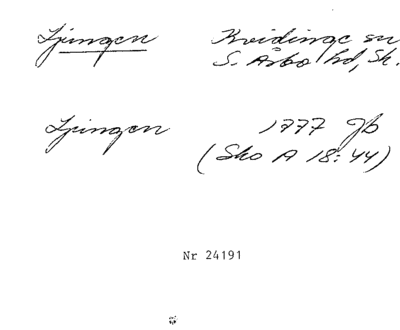 Ljungen Kvidinge sn
S. Åsbo hd, Sk.
Ljungen 1777 Jb
(Sko A 18:44)
Nr 24191